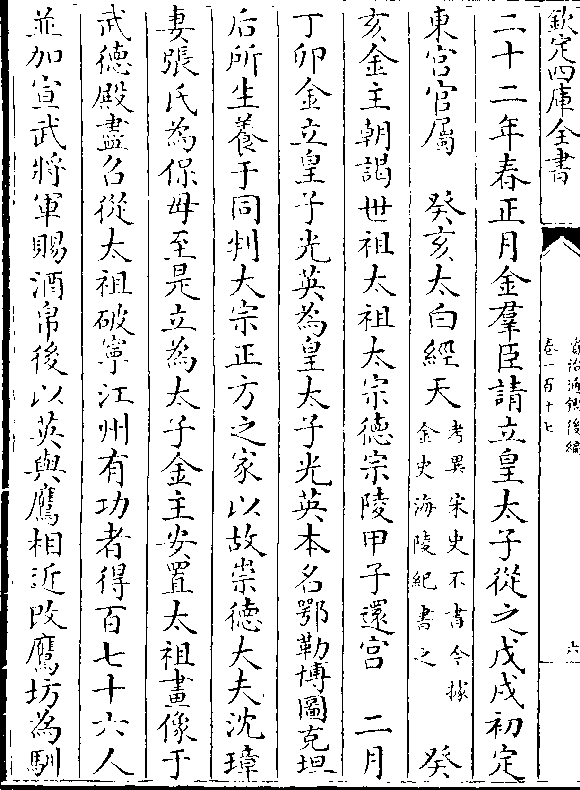 欽定四庫全書
資治通鑑後編
卷一百十七
六
二十二年春正月金羣臣請立皇太子從之戊戌初定
東宮官屬　癸亥太白經天考異宋史不書今據金史海陵紀書之　癸
亥金主朝謁世祖太祖太宗德宗陵甲子還宮　二月
丁卯金立皇子光英為皇太子光英本名鄂勒博圖克坦
后所生養于同判大宗正方之家以故崇德大夫沈璋
妻張氏為保母至是立為太子金主安置太祖畫像于
武德殿盡召從太祖破寧江州有功者得百七十六人
並加宣武將軍賜酒帛後以英與鷹相近改鷹坊為馴